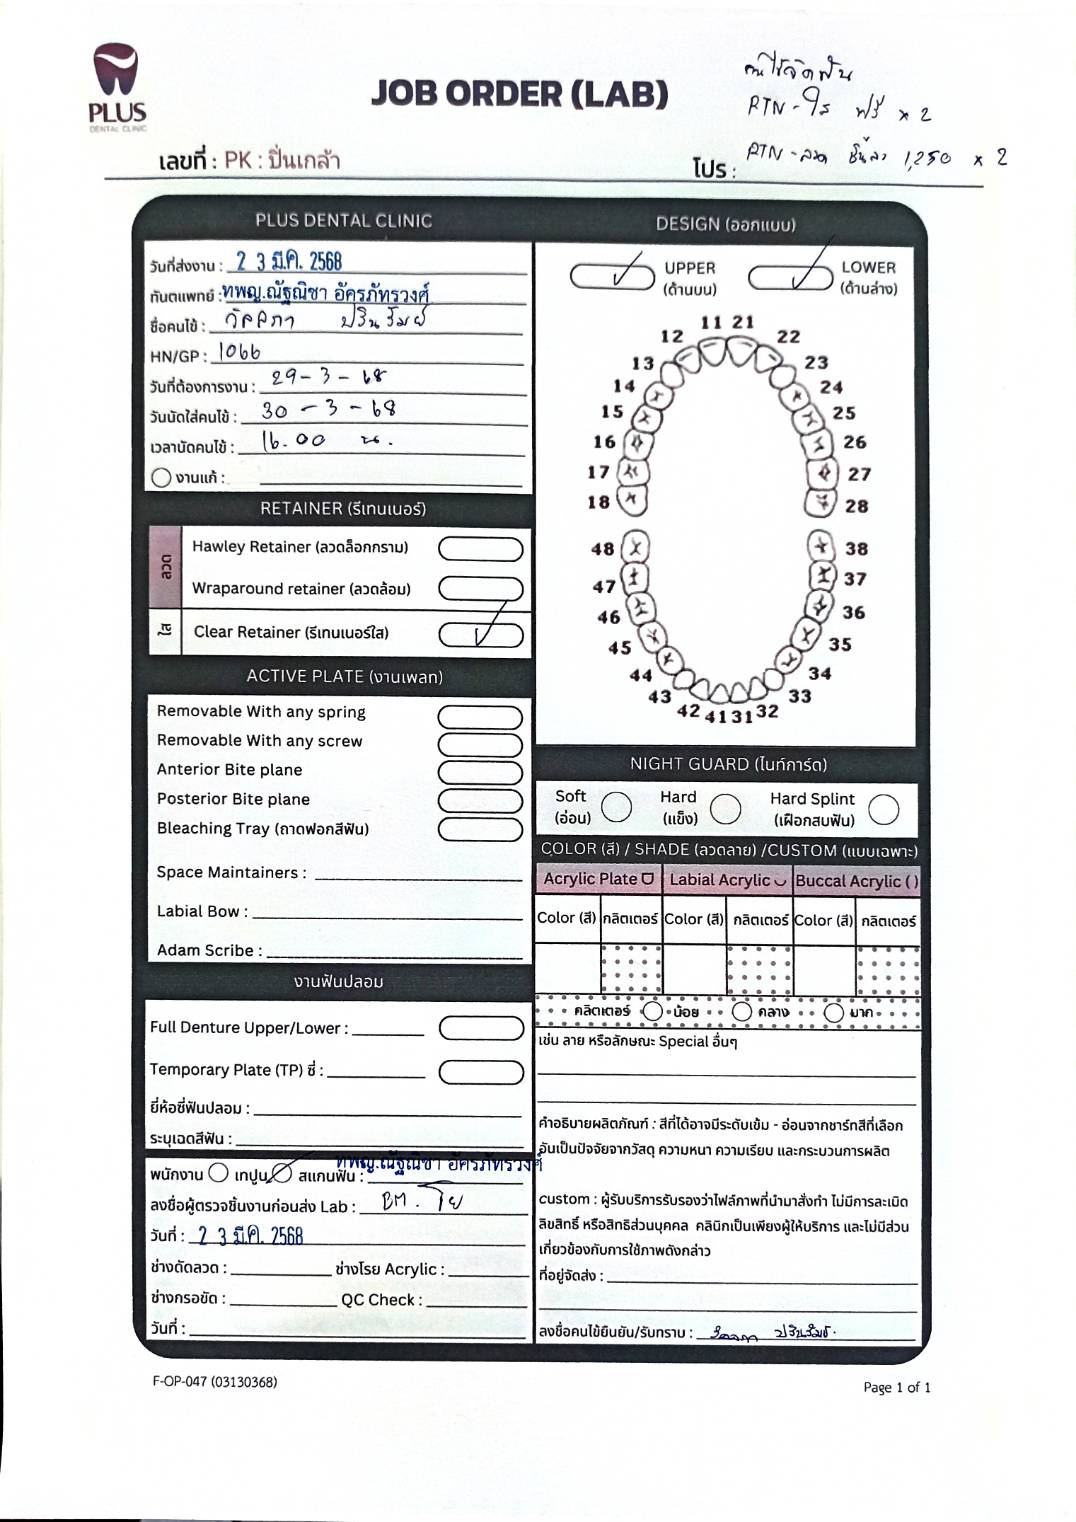 PLUS
DENTAL CLINIC
JOB ORDER (LAB)
คนไข้จัดฟัน
RTN-ใส ฟรี x 2
เลขที่ : PK : ปิ่นเกล้า
โปร :
RTN-ลวด ชิ้นละ 1,250 x 2
PLUS DENTAL CLINIC
วันที่ส่งงาน : 2 3 มี.ค. 2568
ทันตแพทย์ : ทพญ.ณัฐณิชา อัครภัทรวงศ์
ชื่อคนไข้ :
HN/GP : 1066
วันที่ต้องการงาน : 29-3-68
วันนัดใส่คนไข้ : 30-3-68
เวลานัดคนไข้ : 16.00 น.
งานแก้ :
RETAINER (รีเทนเนอร์)
ลวด
Hawley Retainer (ลวดล็อกกราม)
Wraparound retainer (ลวดล้อม)
ใส
Clear Retainer (รีเทนเนอร์ใส)
ACTIVE PLATE (งานเพลท)
Removable With any spring
Removable With any screw
Anterior Bite plane
Posterior Bite plane
Bleaching Tray (ถาดฟอกสีฟัน)
Space Maintainers :
Labial Bow :
Adam Scribe :
งานฟันปลอม
Full Denture Upper/Lower :
Temporary Plate (TP) ซี่ :
ยี่ห้อซี่ฟันปลอม :
ระบุเฉดสีฟัน :
พนักงาน เทปูน สแกนฟัน : ทพญ.ณัฐณิชา อัครภัทรวงศ์
ลงชื่อผู้ตรวจชิ้นงานก่อนส่ง Lab : BM.
วันที่ : 2 3 มี.ค. 2568
ช่างดัดลวด : ช่างโรย Acrylic :
ช่างกรอขัด : QC Check :
วันที่ :
DESIGN (ออกแบบ)
UPPER
(ด้านบน)
LOWER
(ด้านล่าง)
11 21
12 22
13 23
14 24
15 25
16 26
17 27
18 28
48 38
47 37
46 36
45 35
44 34
43 33
42 41 31 32
NIGHT GUARD (ไนท์การ์ด)
Soft
(อ่อน)
Hard
(แข็ง)
Hard Splint
(เฝือกสบฟัน)
COLOR (สี) / SHADE (ลวดลาย) /CUSTOM (แบบเฉพาะ)
Acrylic Plate Labial Acrylic Buccal Acrylic ( )
Color (สี) กลิตเตอร์ Color (สี) กลิตเตอร์ Color (สี) กลิตเตอร์
กลิตเตอร์ น้อย กลาง มาก
เช่น ลาย หรือลักษณะ Special อื่นๆ
คำอธิบายผลิตภัณฑ์ : สีที่ได้อาจมีระดับเข้ม - อ่อนจากชาร์ทสีที่เลือก
อันเป็นปัจจัยจากวัสดุ ความหนา ความเรียบ และกระบวนการผลิต
custom : ผู้รับบริการรับรองว่าไฟล์ภาพที่นำมาสั่งทำ ไม่มีการละเมิด
ลิขสิทธิ์ หรือสิทธิส่วนบุคคล คลินิกเป็นเพียงผู้ให้บริการ และไม่มีส่วน
เกี่ยวข้องกับการใช้ภาพดังกล่าว
ที่อยู่จัดส่ง :
ลงชื่อคนไข้ยืนยัน/รับทราบ :
F-OP-047 (03130368)
Page 1 of 1